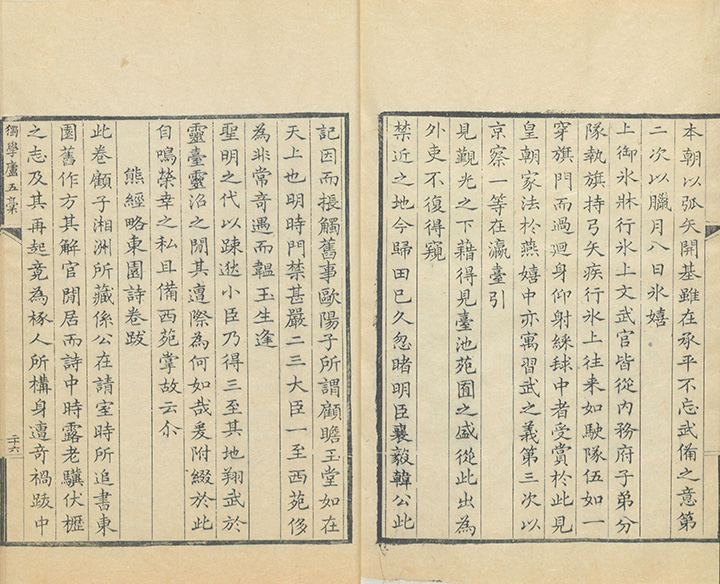 本朝以弧矢開基雖在承平不忘武備之意第
二次以臘月八日氷嬉
上御氷牀行氷上文武官皆從內務府子弟分
隊執旗持弓矢疾行氷上往来如駛隊伍如一
穿旗門而過迴身仰射綵毬中者受賞於此見
皇朝家法於燕嬉中亦寓習武之義第三次以
京察一等在瀛臺引
見觀光之下藉得見臺池苑囿之盛從此出為
外吏不復得窺
禁近之地今歸田已久忽睹明臣襄毅韓公此
記因而振觸舊事歐陽子所謂顧瞻玉堂如在
天上也明時門禁甚嚴二三大臣一至西苑侈
為非常奇遇而韞玉生逢
聖明之代以踈逖小臣乃得三至其地翔武於
靈臺靈沼之閒其遭際為何如哉爰附綴於此
自鳴榮幸之私且備西苑掌故云尒
熊經略東園詩卷跋
此卷顧子湘洲所藏係公在請室時所追書東
園舊作方其解官閒居而詩中時露老驥伏櫪
之志及其再起竟為椓人所構身遭奇禍跋中
獨學廬五稾
二十六